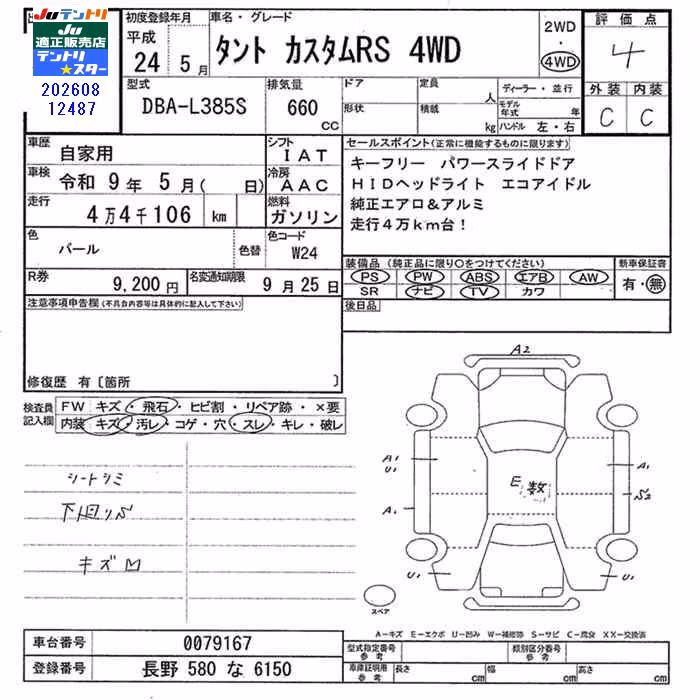 Juテントリ
JU
適正販売店
テントリ
★スター
202608
12487
初度登録年月
平成
24 5月
車名・グレード
タント カスタムRS 4WD
2WD
・
4WD
評価点
4
外装 内装
C C
型式
DBA-L385S
排気量
660
cc
ドア
形状
定員
人
積載
kg
ディーラー・並行
モデル年式 年
ハンドル 左・右
車歴
自家用
シフト
IAT
車検
令和 9年 5月( 日)
冷房
AAC
走行
4万4千106 km
燃料
ガソリン
色
パール
色替
色コード
W24
R券
9,200円
名変通知期限
9月25日
セールスポイント(正常に機能するものに限ります)
キーフリー パワースライドドア
HIDヘッドライト エコアイドル
純正エアロ&アルミ
走行4万km台!
装備品(純正品に限り○をつけてください)
PS PW ABS エアB AW
SR ナビ TV カワ
新車保証書
有・無
後日品
注意事項申告欄(不具合内容等は具体的に記入して下さい)
修復歴 有〔箇所 〕
検査員記入欄
FW キズ・飛石・ヒビ割・リペア跡・×要
内装 キズ・汚レ・コゲ・穴・スレ・キレ・破レ
シートシミ
キズ
A2
A1
U1
A1
E
数
A1
S2
U1
U1
スペア
A-キズ E-エクボ U-凹み W-補修跡 S-サビ C-腐食 XX-交換済
車台番号 0079167
登録番号 長野 580 な 6150
型式指定番号
参考
類別区分番号
参考
車庫証明用
参考
長さ cm 幅 cm 高さ cm